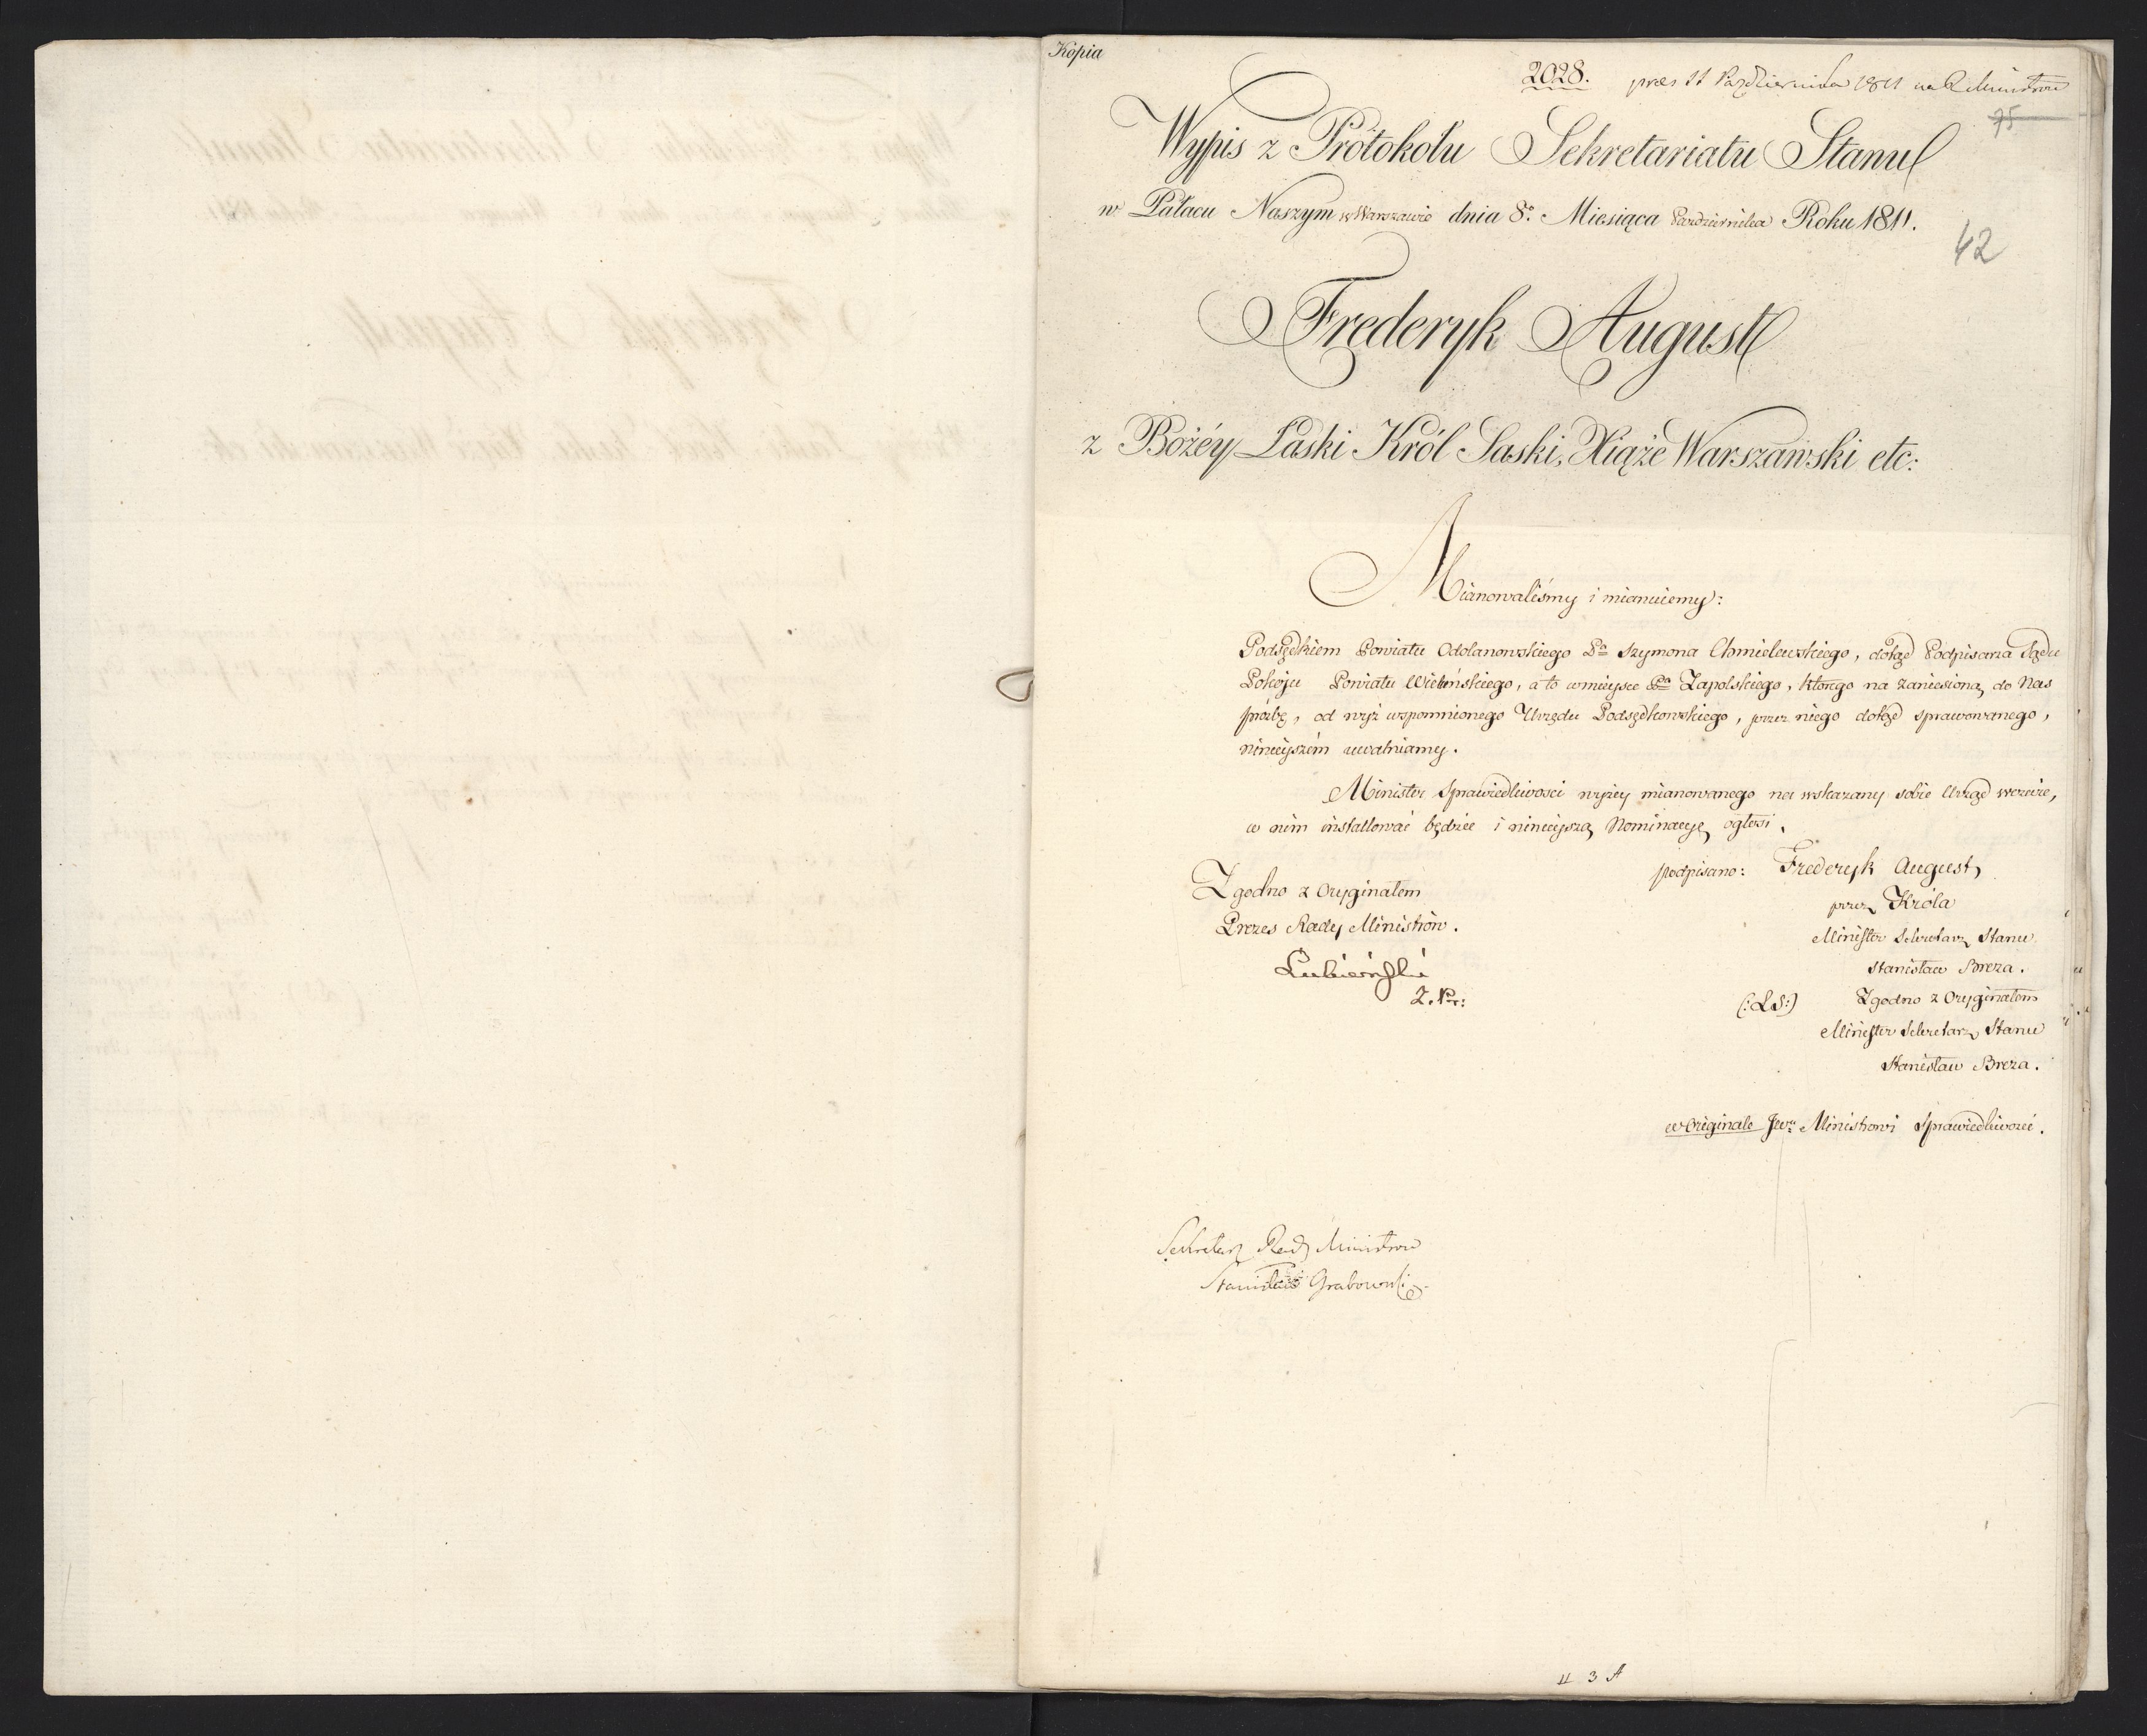 Kopia
2028. præs 11 Października 1811 na R Ministrow
75
Wypis z Protokołu Sekretariatu Stanu
w Pałacu Naszym w Warszawie dnia 8º Miesiąca Października Roku 1811.
42
Frederyk August
z Bożéy Łaski Król Saski, Xiąże Warszawski etc:
Mianowaliśmy i mianuiemy:
Podsędkiem Powiatu Odolanowskiego Pa Szymona Chmielewskiego, dotąd Podpisarza Sądu
Pokoju Powiatu Wieluńskiego, a to w mieysce Pa Zapolskiego, którego na zaniesioną do Nas
prózbę, od wyż wspomnionego Urzędu Podsędkowskiego, przez niego dotąd sprawowanego,
ninieyszém uwalniamy.
Minister Sprawiedliwości wyżey mianowanego na wskazany sobie Urząd wezwie,
w nim installować będzie i ninieyszą Nominacyę ogłosi.
podpisano: Frederyk August,
przez Króla
Minister Sekretarz Stanu
Stanisław Breza.
(:LS:) Zgodno z Oryginałem
Minister Sekretarz Stanu
Stanisław Breza.
Zgodno z Oryginałem
Prezes Rady Ministrów.
Łubieński
Z. Pr:
w Originale Jwu Ministrowi Sprawiedliwości.
Sekretarz Rady Ministrow
Stanisław Grabowski
3 A